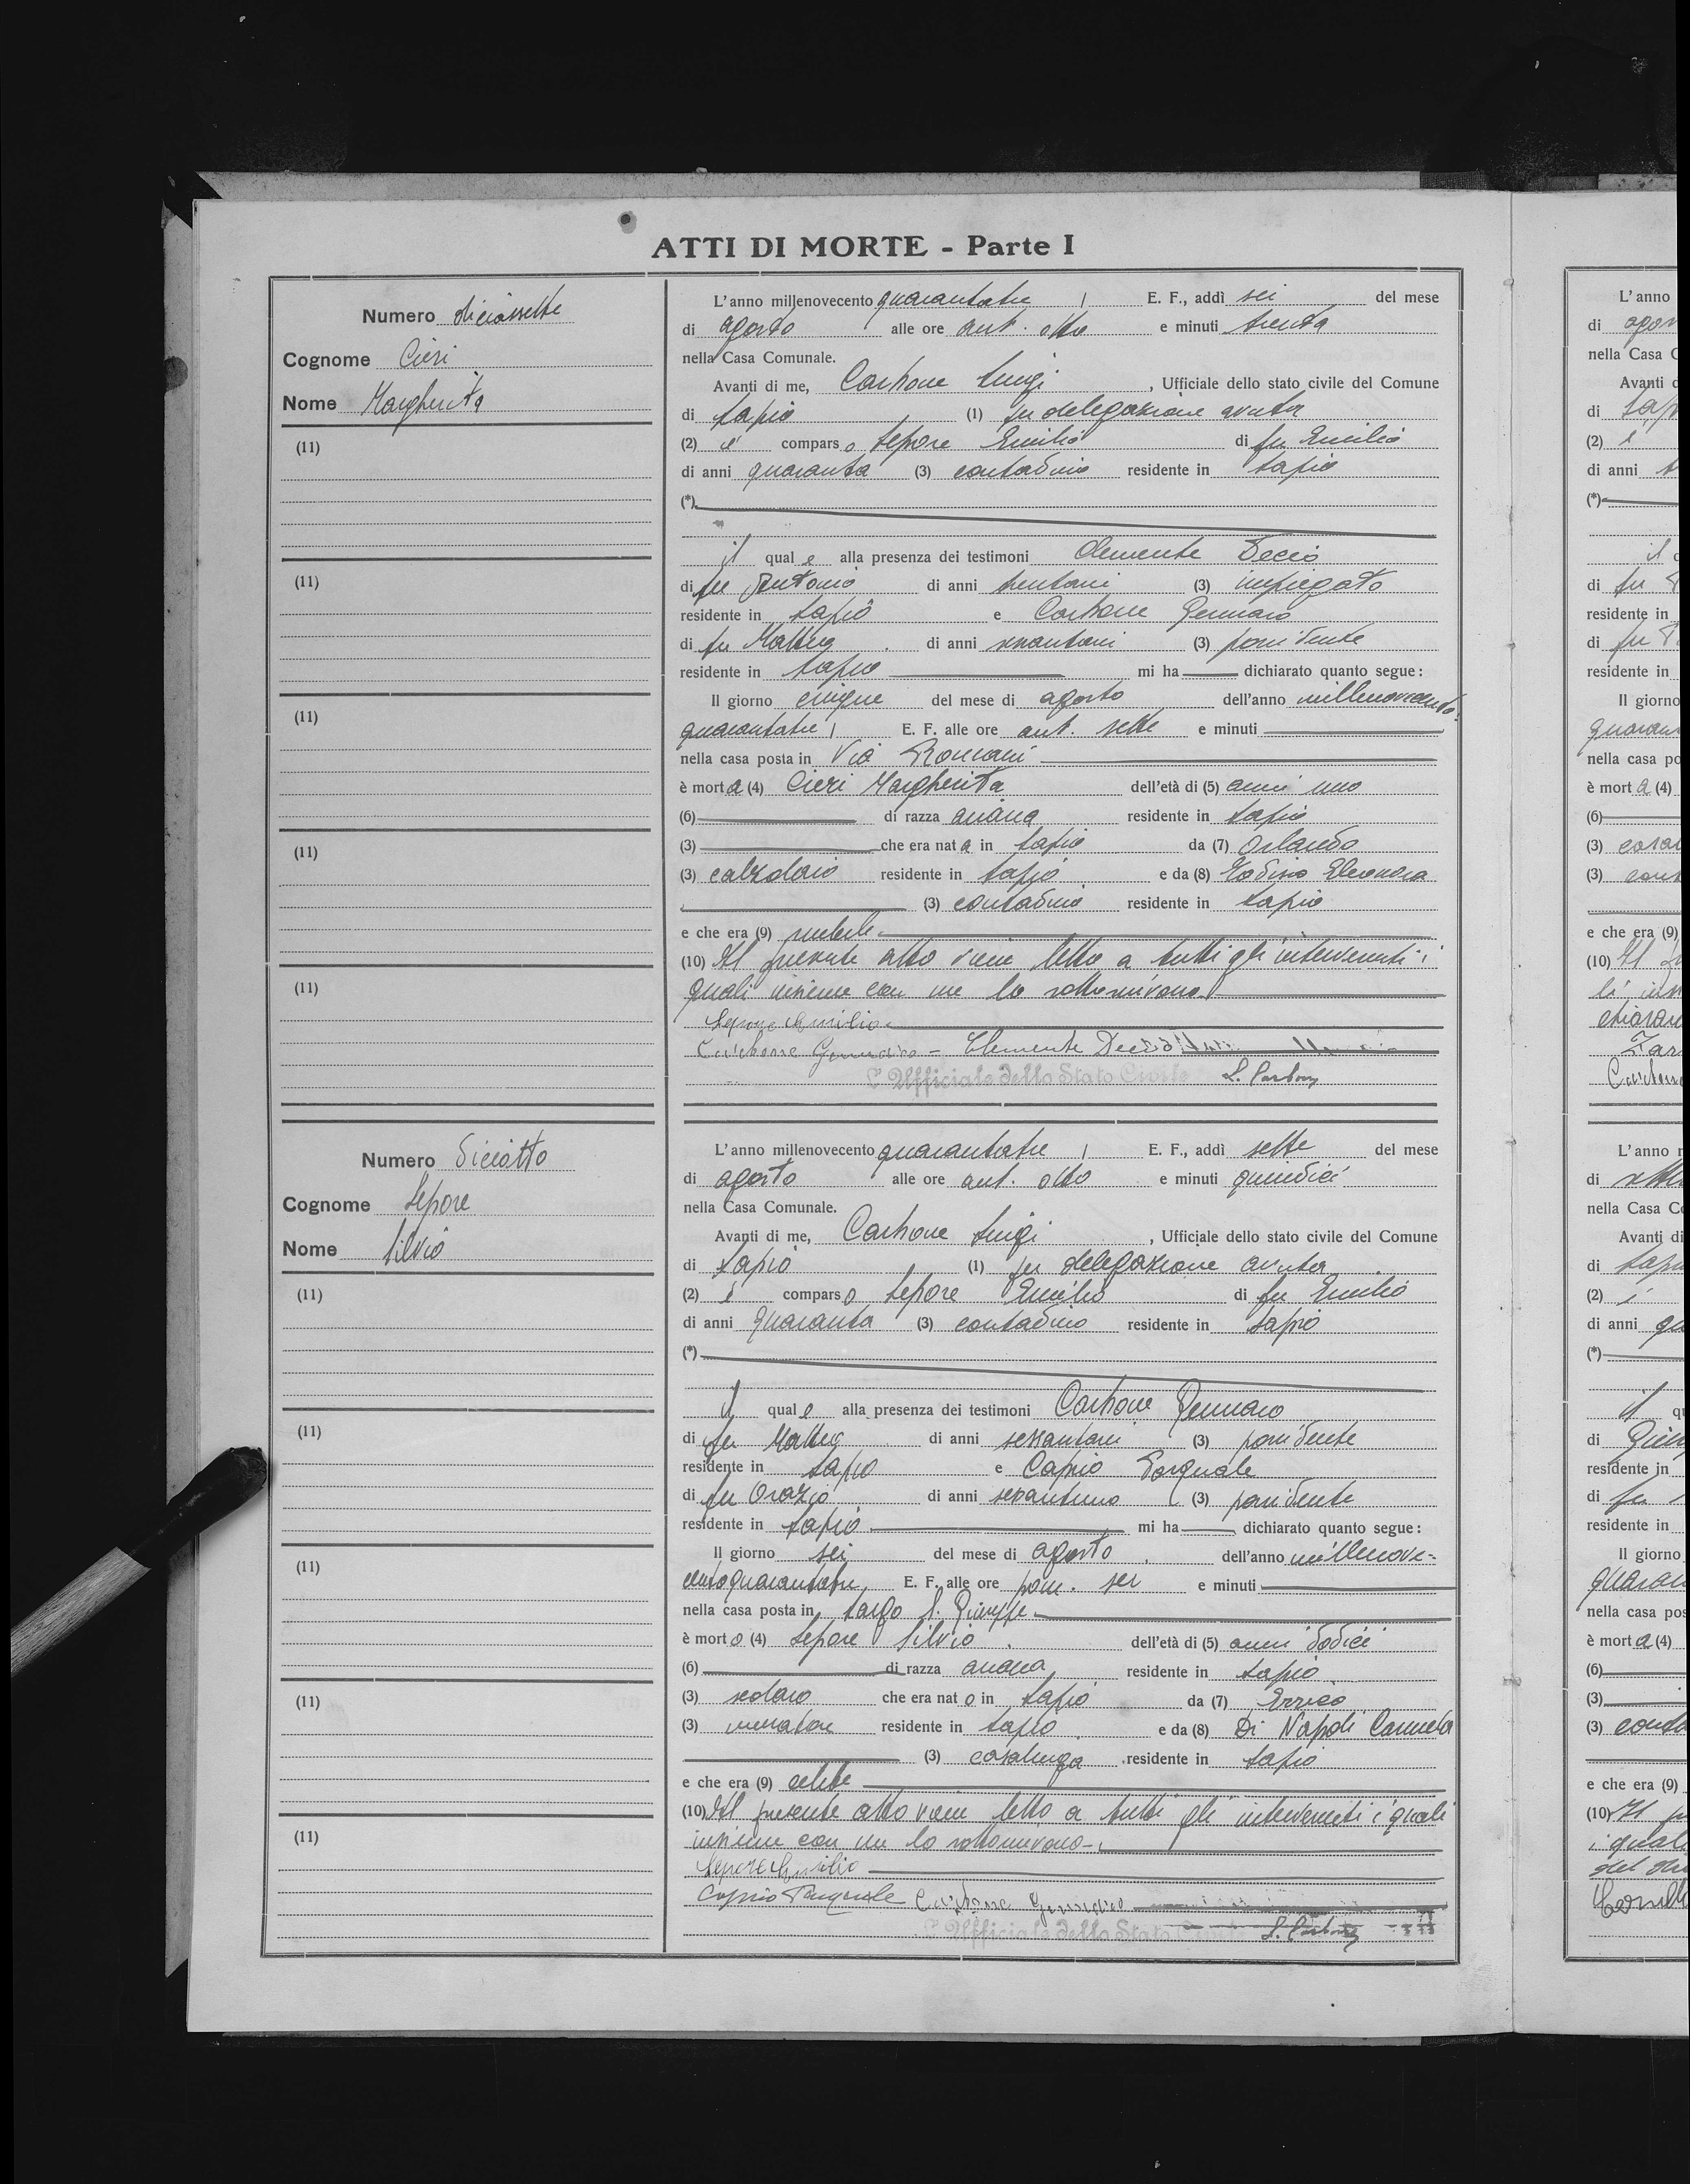 ATTI DI MORTE - Parte I
Numero diciassette
Cognome Cieri
Nome Margherita
(11)
(11)
(11)
(11)
(11)
L'anno millenovecento quarantatre, E. F., addì sei del mese
di agosto alle ore ant. otto e minuti trenta
nella Casa Comunale.
Avanti di me, Carbone Luigi, Ufficiale dello stato civile del Comune
di Lapio (1) per delegazione avuta
(2) è comparso Lepore Emilio di fu Emilio
di anni quaranta (3) contadino residente in Lapio
(*)
il quale alla presenza dei testimoni Clemente Decio
di fu Antonio di anni trentasei (3) impiegato
residente in Lapio e Carbone Gennaro
di fu Matteo di anni sessantasei (3) possidente
residente in Lapio mi ha dichiarato quanto segue:
Il giorno cinque del mese di agosto dell'anno millenovecento-
quarantatre, E. F. alle ore ant. sette e minuti
nella casa posta in Via Romani
è morta (4) Cieri Margherita dell'età di (5) anni uno
(6) di razza ariana residente in Lapio
(3) che era nata in Lapio da (7) Orlando
(3) calzolaio residente in Lapio e da (8) Eleonora
(3) contadina residente in Lapio
e che era (9) nubile
(10) Il presente atto viene letto a tutti gli intervenuti i
quali insieme con me lo sottoscrivono.
Lepore Emilio
Carbone Gennaro - Clemente Decio
L'Ufficiale dello Stato Civile L. Carbone
Numero diciotto
Cognome Lepore
Nome Silvio
(11)
(11)
(11)
(11)
(11)
L'anno millenovecento quarantatre, E. F., addì sette del mese
di agosto alle ore ant. otto e minuti quindici
nella Casa Comunale.
Avanti di me, Carbone Luigi, Ufficiale dello stato civile del Comune
di Lapio (1) per delegazione avuta
(2) è comparso Lepore Emilio di fu Emilio
di anni quaranta (3) contadino residente in Lapio
(*)
il quale alla presenza dei testimoni Carbone Gennaro
di fu Matteo di anni sessantasei (3) possidente
residente in Lapio e Caprio Pasquale
di fu Orazio di anni sessantuno (3) possidente
residente in Lapio mi ha dichiarato quanto segue:
Il giorno sei del mese di agosto dell'anno millenove-
centoquarantatre, E. F. alle ore pom. sei e minuti
nella casa posta in Largo S. Giuseppe
è morto (4) Lepore Silvio dell'età di (5) anni dodici
(6) di razza ariana residente in Lapio
(3) scolaro che era nato in Lapio da (7) Errico
(3) muratore residente in Lapio e da (8) Di Napoli Carmela
(3) casalinga residente in Lapio
e che era (9) celibe
(10) Il presente atto viene letto a tutti gli intervenuti i quali
insieme con me lo sottoscrivono.
Lepore Emilio
Caprio Pasquale Carbone Gennaro
L'Ufficiale dello Stato L. Carbone